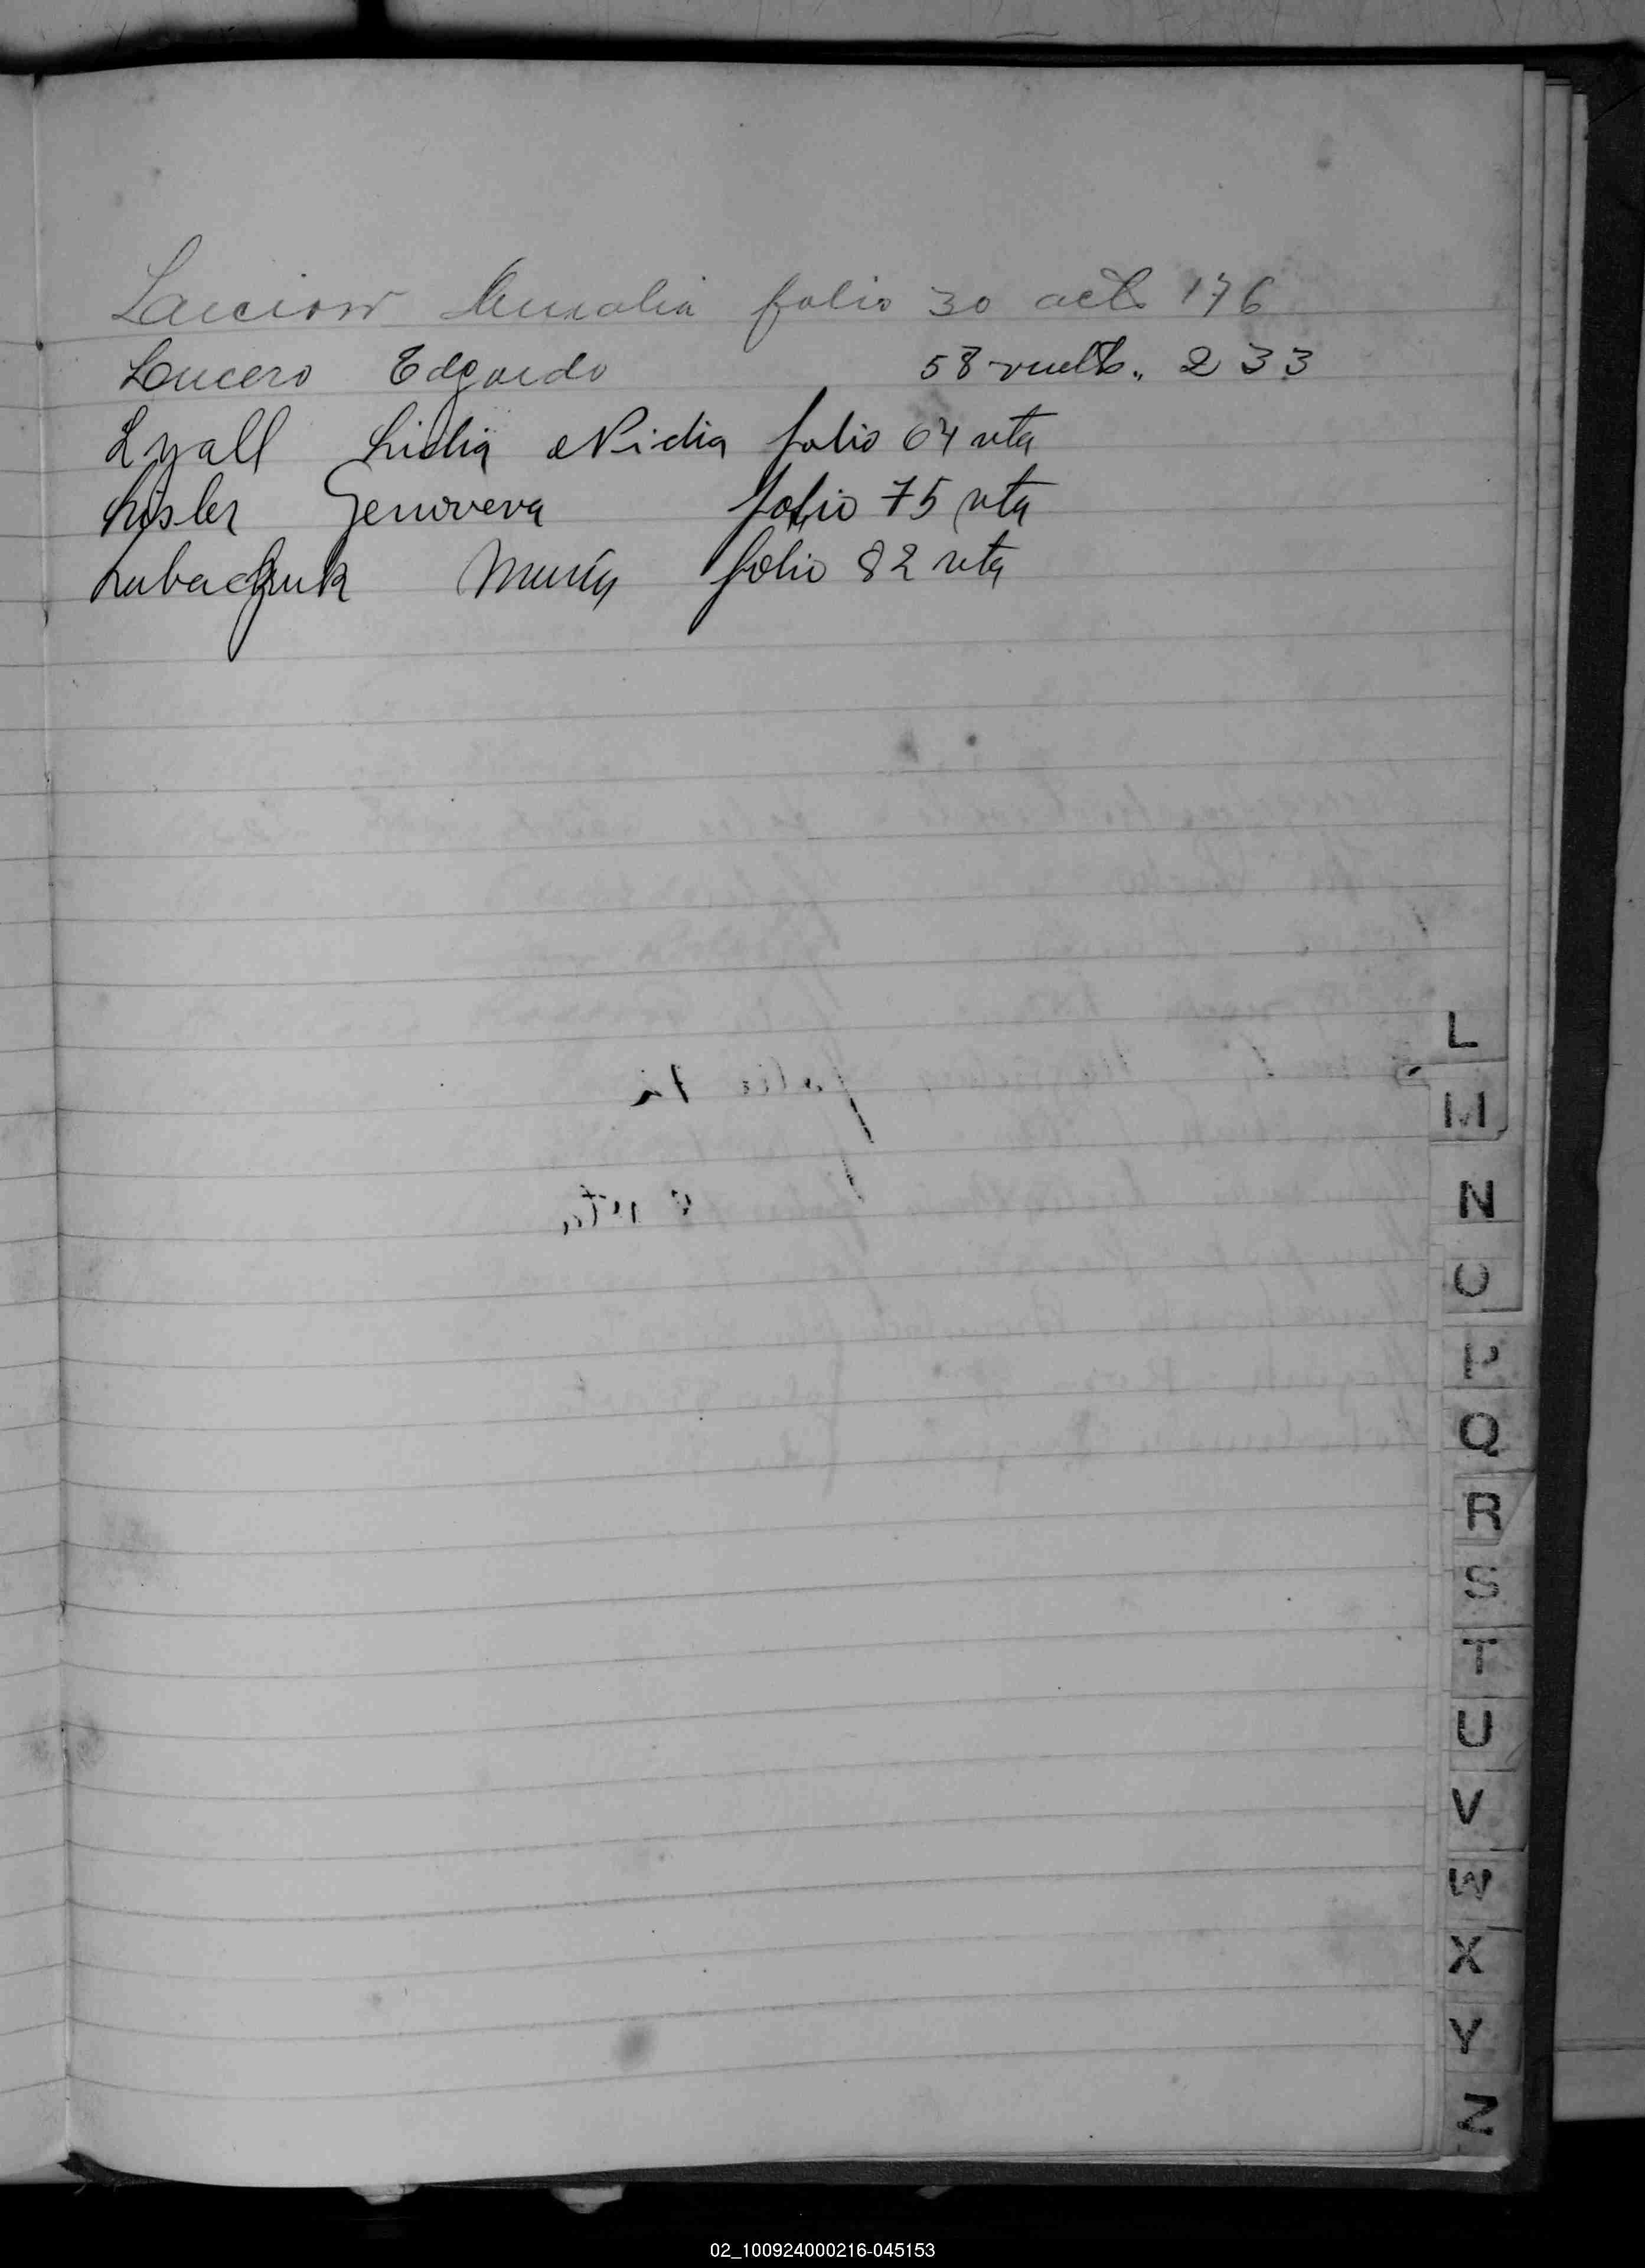 folio 30 acta 176
Lucero Edgardo 58 vuelta. 233
Lyall Lidia Nidia folio 64 vta
Lisler Genoveva folio 75 vta
Lubaczuk María folio 82 vta
L
M
N
O
P
Q
R
S
T
U
V
W
X
Y
Z
02_100924000216-045153